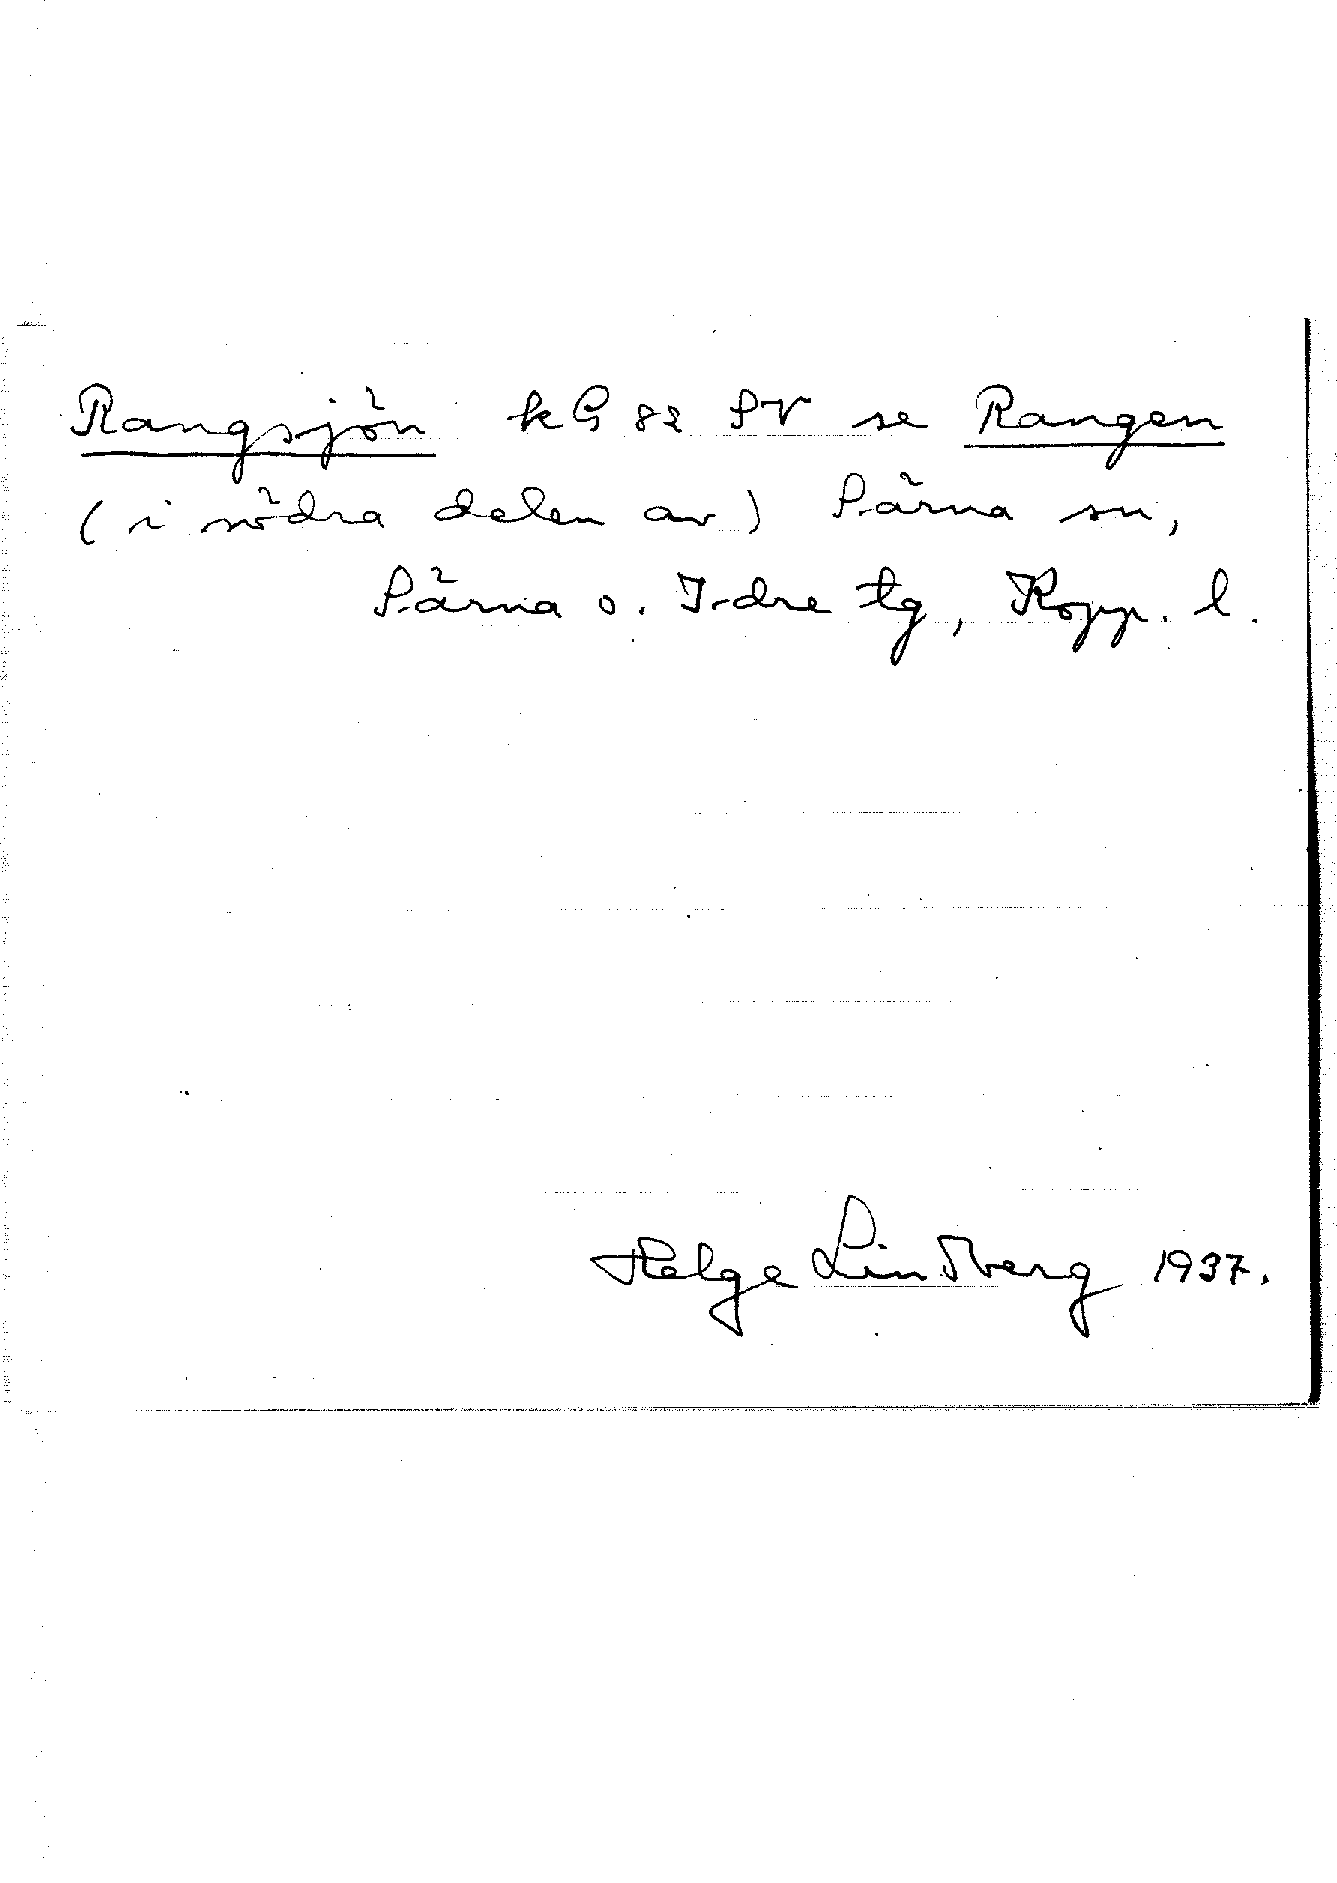 Rangsjön kG 82 SV se Rangen
(i södra delen av) Särna sn,
Särna o. Idre tg, Kopp. l.
Helge Lindberg 1937.